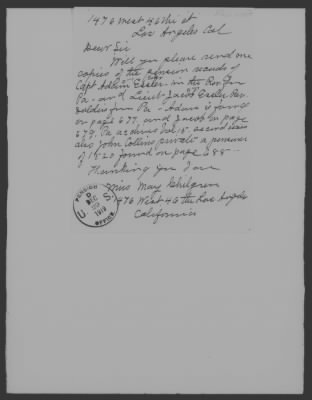 1476 West 46th st
Los Angeles Cal
Dear Sir
Will you please send me
copies of the pension records of
Capt Adam in the Rev. War
Pa - and Lieut - Jacob Rev.
soldier from Pa - Adam is found
on page 677, and Jacob on page
679. Pa archives Vol 18 second series
also John Collins private a pensioner
of 1820 found on page 688 -
Thanking you I am
Miss May
1476 West 46 the Los Angeles
California
PENSION
DEC
1919
U. S.
OFFICE